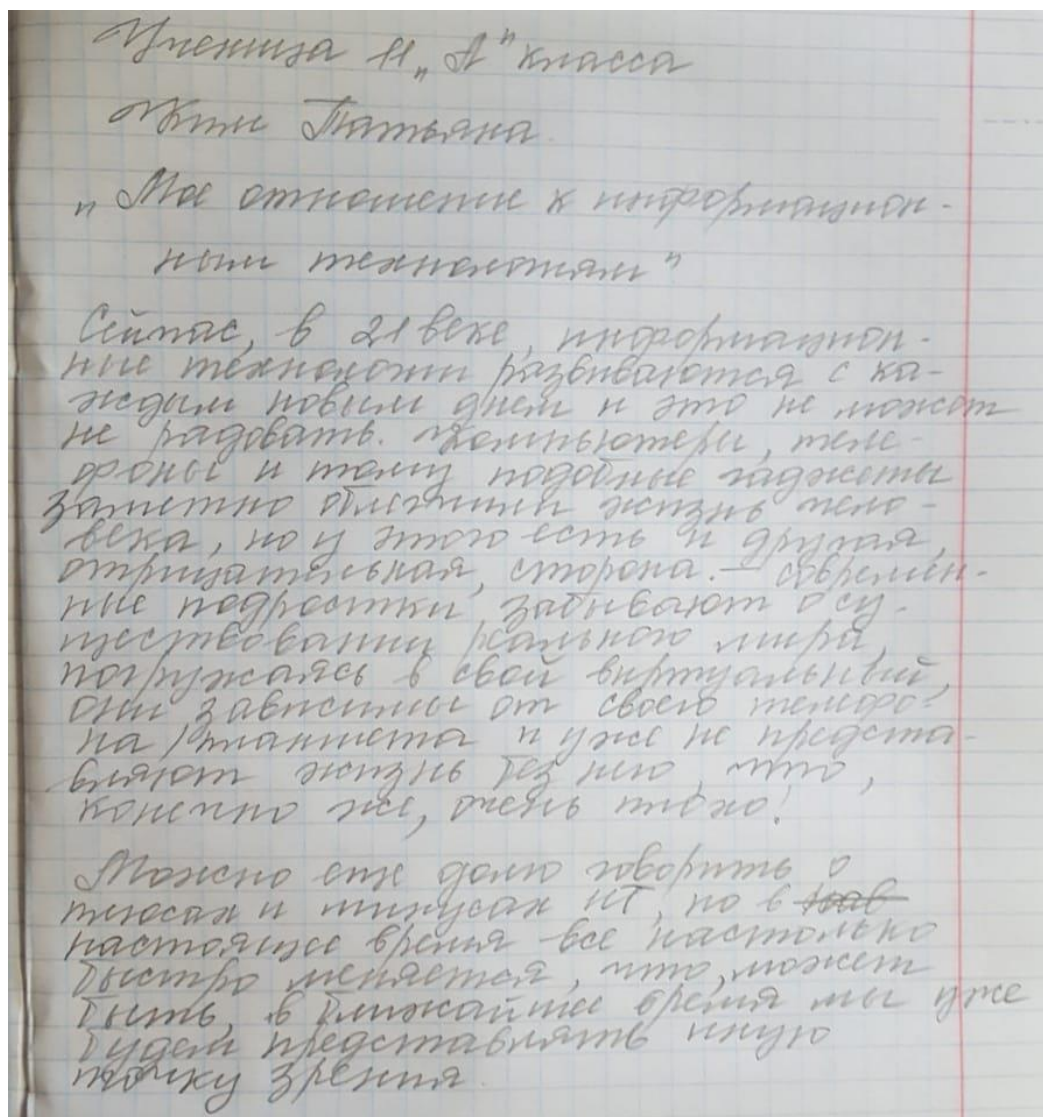 Ученица 11 „А" класса
Татьяна.
„Мое отношение к информацион-
ным технологиям"
Сейчас, в 21 веке, информацион-
ные технологии развиваются с ка-
ждым новым днем и это не может
не радовать. Компьютеры, теле-
фоны и тому подобные гаджеты
заметно облегчили жизнь чело-
века, но у этого есть и другая,
отрицательная, сторона. – современ-
ные подростки забывают о су-
ществовании реального мира,
погружаясь в свой виртуальный,
они зависимы от своего телефо-
на/планшета и уже не предста-
вляют жизнь без него, что,
конечно же, очень плохо!
Можно еще долго говорить о
плюсах и минусах ИТ, но в
настоящее время все настолько
быстро меняется, что, может
быть, в ближайшее время мы уже
будем представлять иную
точку зрения.